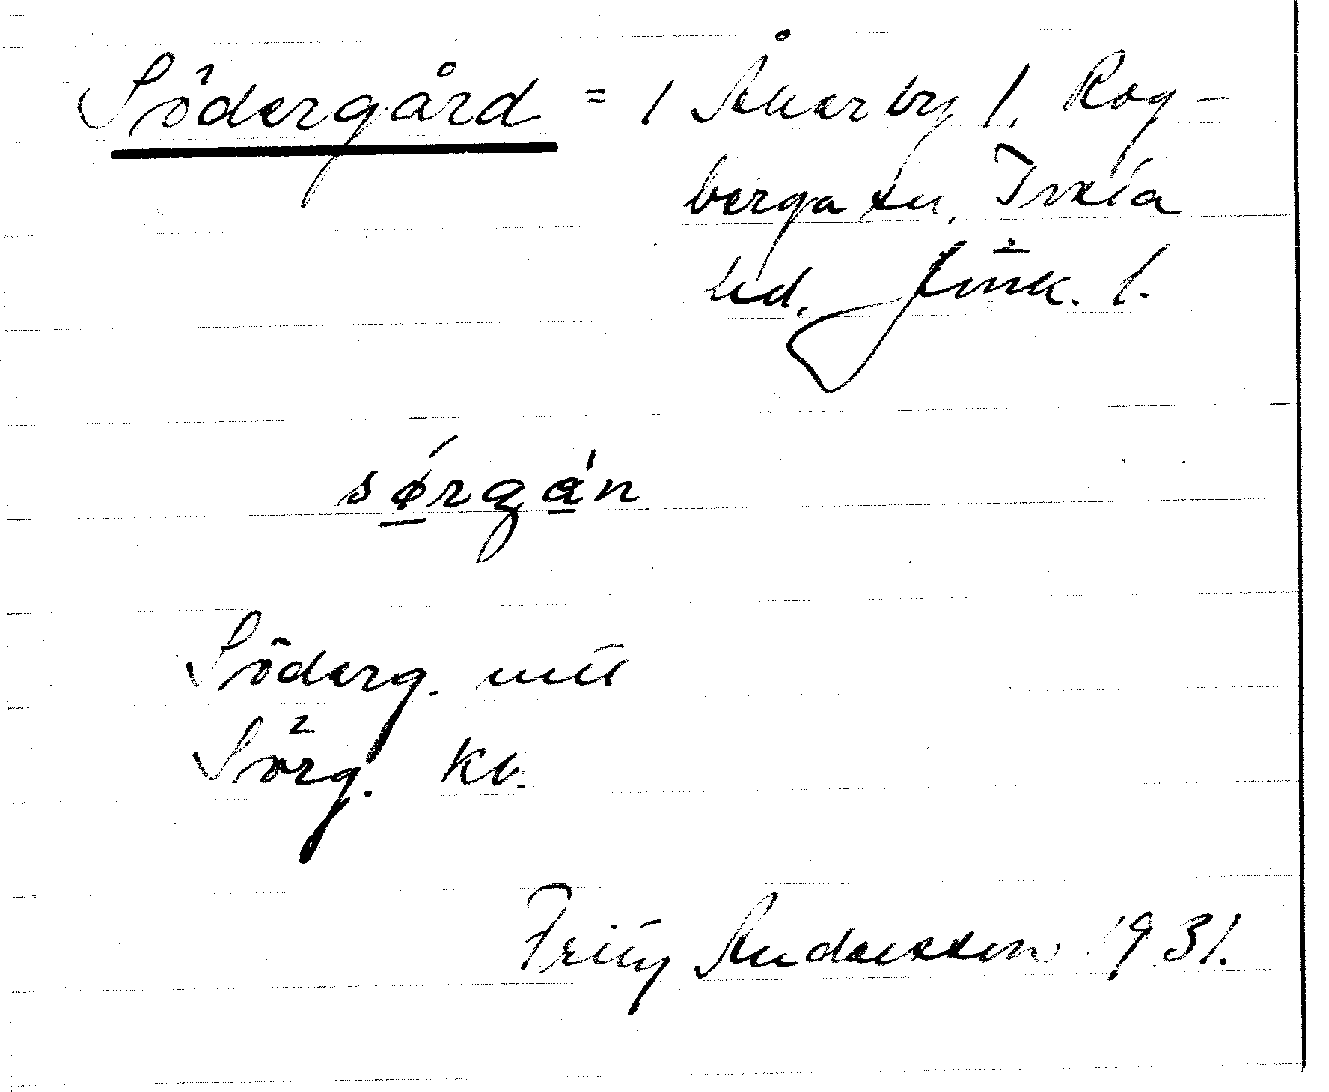 Södergård = 1 Åkerby 1. Rog-
berga sn, Tveta
hd. Jönk. l.
sǿ̱rgá̱n
Söderg. utt
Sörg. kb.
Fritz Andersson 1931.